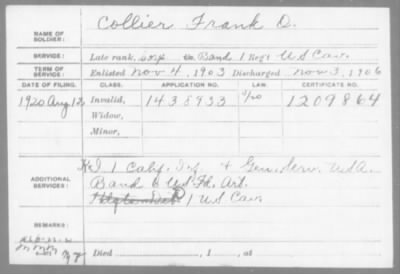 NAME OF SOLDIER: Collier Frank O.
SERVICE: Late rank, Band 1 Reg't US Cav.
TERM OF SERVICE: Enlisted Nov 4, 1903 Discharged Nov 3, 1906
DATE OF FILING. CLASS. APPLICATION NO. LAW. CERTIFICATE NO.
1920 Aug 12 Invalid, 1438933 1209864
Widow,
Minor,
ADDITIONAL SERVICES: 1 Calif. Inf. & Gen. Serv. USA.
Band 6 US Fd. Art.
1 US Cav
REMARKS:
Died , 1 , at